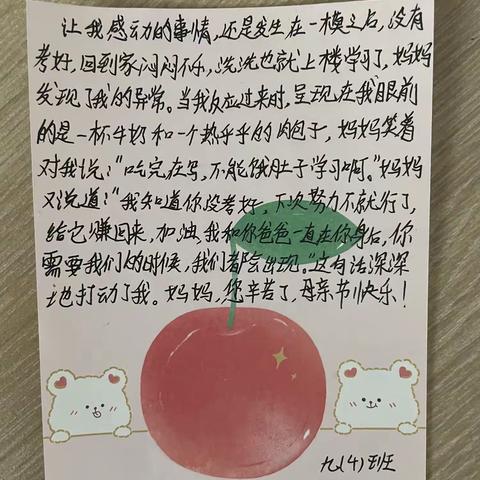 让我感动的事情,还是发生在一模之后,没有
考好,回到家闷闷不乐,洗洗也就上楼学习了,妈妈
发现了我的异常。当我反应过来时,呈现在我眼前
的是一杯牛奶和一个热乎乎的肉包子,妈妈笑着
对我说:“吃完在写,不能饿肚子学习啊。”妈妈
又说道:“我知道你没考好,下次努力不就行了,
给它赚回来,加油,我和你爸爸一直在你身后,你
需要我们的时候,我们都会出现。”这句话深深
地打动了我。妈妈,您辛苦了,母亲节快乐!
九(4)班